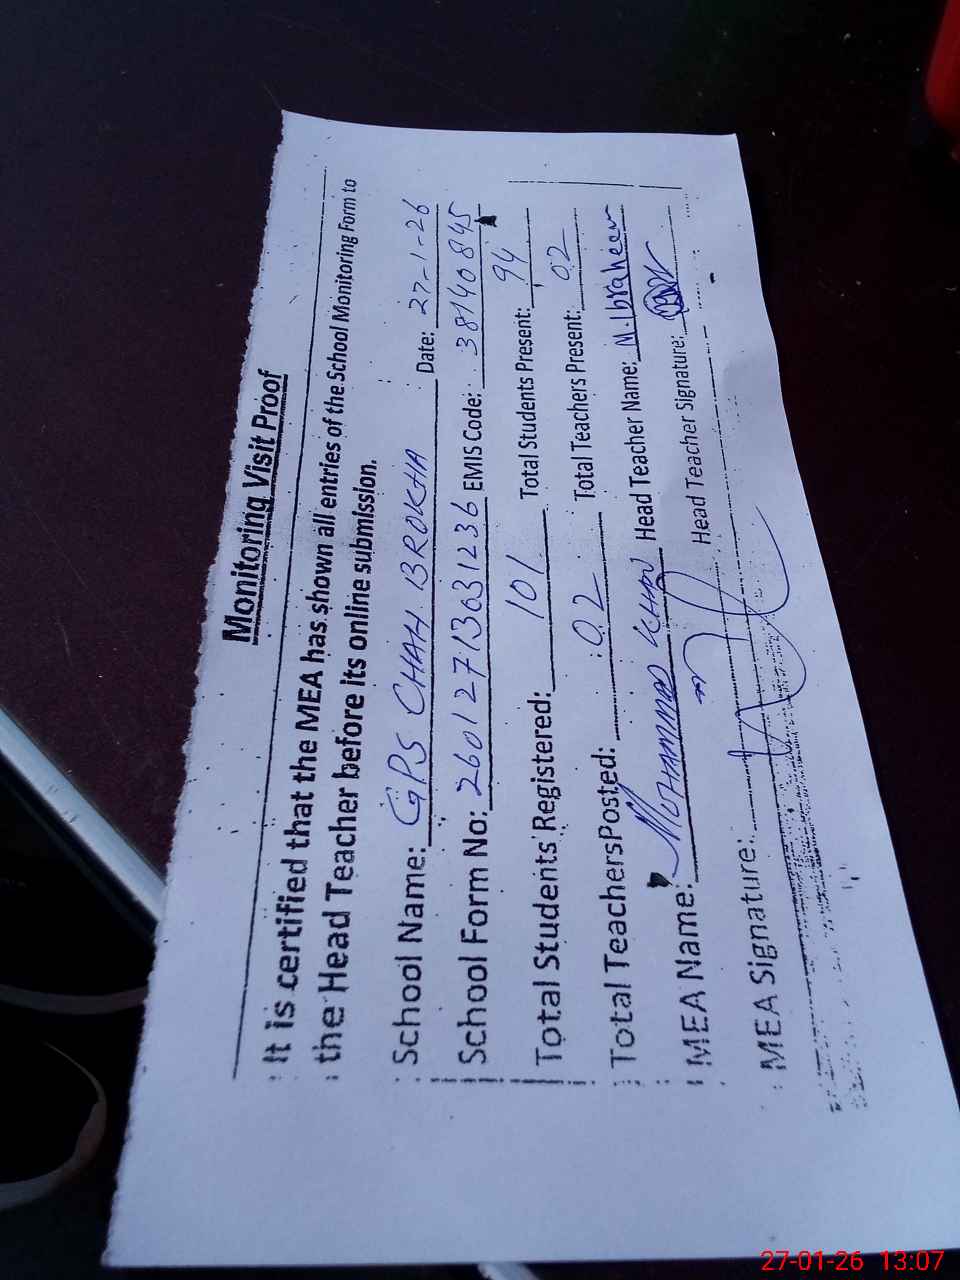 Monitoring Visit Proof
It is certified that the MEA has shown all entries of the School Monitoring Form to
the Head Teacher before its online submission.
School Name: GPS CHAH BROKHA Date: 27-1-26
School Form No: 26012713631236 EMIS Code: 38140845
Total Students Registered: 101 Total Students Present: 94
Total Teachers Posted: 02 Total Teachers Present: 02
MEA Name: MUHAMMAD KHAN Head Teacher Name: M. Ibraheem
MEA Signature: Head Teacher Signature:
27-01-26 13:07